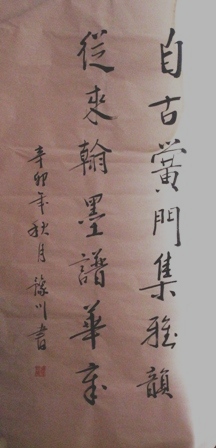 自古黌門集雅韻
從來翰墨譜華章
辛卯年秋月 豫川書